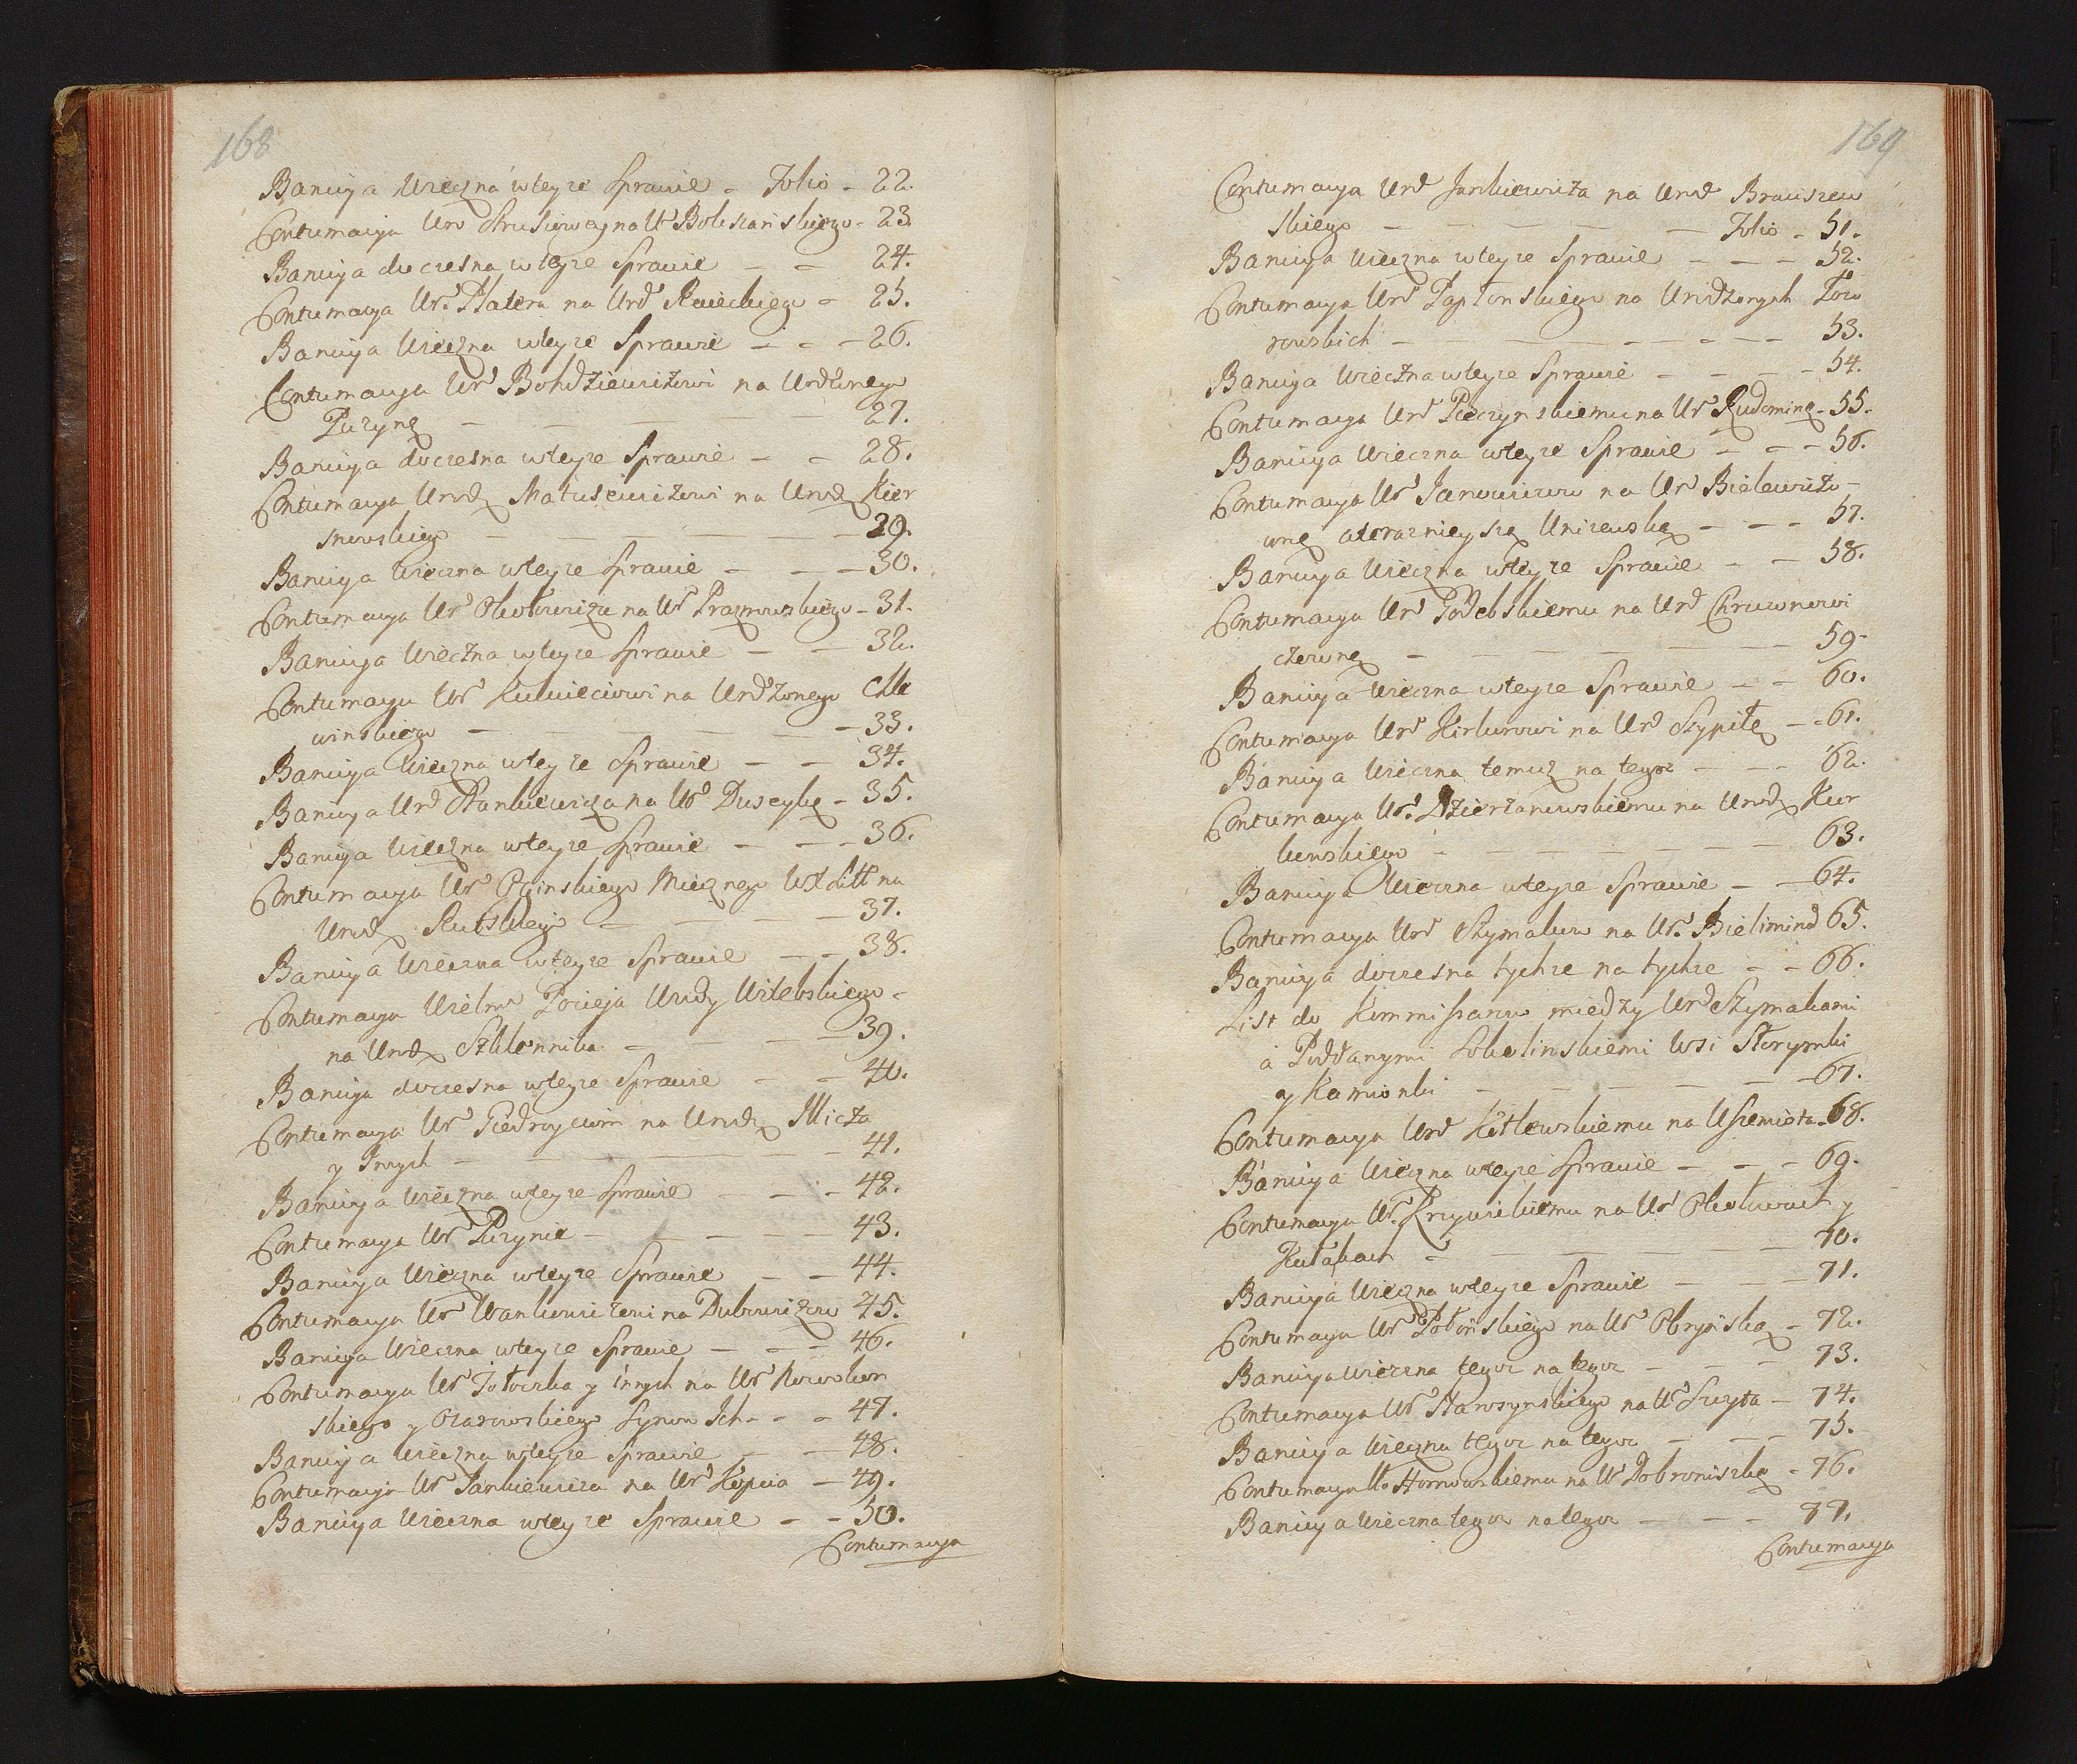 168
Banicya Wieczna w teyze Sprawie - Folio - 22.
Contumacya Ur Strusiowey na Ur Bolszańskiego - 23.
Banicya doczesna w teyze Sprawie - - 24.
Contumacya Ur. Platera na Urd - 25.
Banicya Wieczna w teyze Sprawie - - - 26.
Contumacya Ur Bohdziewiczowi na Urdzonego
Puzynę - - - - 27.
Banicya doczesna w teyze Sprawie - - 28.
Contumacya Urodz Matusewiczowi na Urodz Kier
snowskiego - - - - 29.
Banicya Wieczna w teyze Sprawie - - - 30.
Contumacya Ur Okołowicza na Ur Prazmowskiego - 31.
Banicya Wieczna w teyze Sprawie - - 32.
Contumacya Ur na Urdzonego Mle
winskiego - - - - 33.
Banicya Wieczna w teyze Sprawie - - 34.
Banicya Urd Stankiewicza na Ur - 35.
Banicya Wieczna w teyze Sprawie - - - 36.
Contumacya Ur Oginskiego Miecznego WXLitt na
Urodz - - - 37.
Banicya Wieczna w teyze Sprawie - - 38.
Contumacya Wielm Pocieja Witebskiego -
na Urodz - - - 39.
Banicya doczesna w teyze Sprawie - - 40.
Contumacya Ur Giedroyciom na Urodz
y Innych - - - - 41.
Banicya Wieczna w teyze Sprawie - - - 42.
Contumacya Ur Puzynie - - - - 43.
Banicya Wieczna w teyze Sprawie - - 44.
Contumacya Ur Wankowiczowi na Dubowiczow 45.
Banicya Wieczna w teyze Sprawie - - - 46.
Contumacya Ur y innych na Ur
skiego y Synow Ich - - - 47.
Banicya Wieczna w teyze Sprawie - - 48.
Contumacya Ur Jankiewicza na Ur Kopcia - 49.
Banicya Wieczna w teyze Sprawie - - 50.
Contumacya
169
Contumacya Urd Jankiewicza na Urod Browiszew
skiego - - - - Folio - 51.
Banicya Wieczna w teyze Sprawie - - - 52.
Contumacya Urd na Urodzonych Toro
rowskich - - - - 53.
Banicya Wieczna w teyze Sprawie - - - - 54.
Contumacya Urd na Ur Rudominę - 55.
Banicya Wieczna w teyze Sprawie - - - 56.
Contumacya Ur Janowiczow na Ur Bielewiczo-
wnę a terazniejszą - - - 57.
Banicya Wieczna w teyze Sprawie - - 58.
Contumacya Ur Godebskiemu na Urd Chrzonowi
czownę - - - - 59.
Banicya Wieczna w teyze Sprawie - - 60.
Contumacya Urd Kirkurowi na Urd Szypiłę - - 61.
Banicya Wieczna temuz na tegoz - - - 62.
Contumacya Ur. Dzierzanowskiemu na Urodz Kur
- - - - 63.
Banicya Wieczna w teyze Sprawie - - 64.
Contumacya Urd Szymakow na Ur. 65.
Banicya doczesna tychze na tychze - - 66.
List do Kommissarzow między Urd Szymakami
a Poddanymi Wsi
y Kamionki - - - - 67.
Contumacya Urd Kotlewskiemu na - 68.
Banicya Wieczna w teyze Sprawie - - - 69.
Contumacya Ur. Krzywickiemu na Ur y
- - - - 70.
Banicya Wieczna w teyze Sprawie - - - 71.
Contumacya Ur Połońskiego na Ur Obryńską - 72.
Banicya wieczna tegoz na tegoz - - - 73.
Contumacya Ur Starzynskiego na Ur - 74.
Banicya Wieczna tegoz na tegoz - - - 75.
Contumacya Ur Hornowskiemu na Ur - 76.
Banicya wieczna tegoz na tegoz - - - 77.
Contumacya